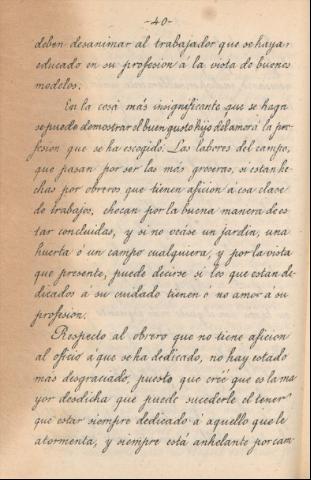 -40-
deben desanimar al trabajador que se haya
educado en su profesión á la vista de buenos
modelos.
En la cosa más insignificante que se haga
se puede demostrar el buen gusto hijo del amor á la pro-
fesión que se ha escogido. Las labores del campo,
que pasan por ser las más groseras, si están he-
chas por obreros que tienen afición á esa clase
de trabajos, chocan por la buena manera de es
tar concluidas, y si no vease un jardín, una
huerta ó un campo cualquiera, y por la vista
que presente, puede decirse si los que están de-
dicados á su cuidado tienen ó no amor á su
profesión.
Respecto al obrero que no tiene afición
al oficio á que se ha dedicado, no hay estado
más desgraciado, puesto que creé que es la ma
yor desdicha que puede sucederle el tener
que estar siempre dedicado á aquello que le
atormenta, y siempre está anhelante por cam